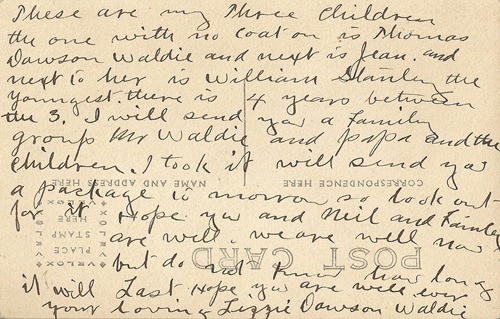 These are my Three children
the one with no coat on is Thomas
Dawson Waldie and next is Jean. and
next to her is William Stanley the
youngest. there is 4 years between
the 3. I will send you a family
group Mr Waldie and papa and the
children. I took it will send you
a package to morrow so look out
for it Hope you and Neil and Family
are well. we are well now
but do not know how long
it will Last Hope you are well ever
your loving Lizzie Dawson Waldie
CORRESPONDENCE HERE
NAME AND ADDRESS HERE
POST CARD
VELOX
PLACE
STAMP
HERE
VELOX